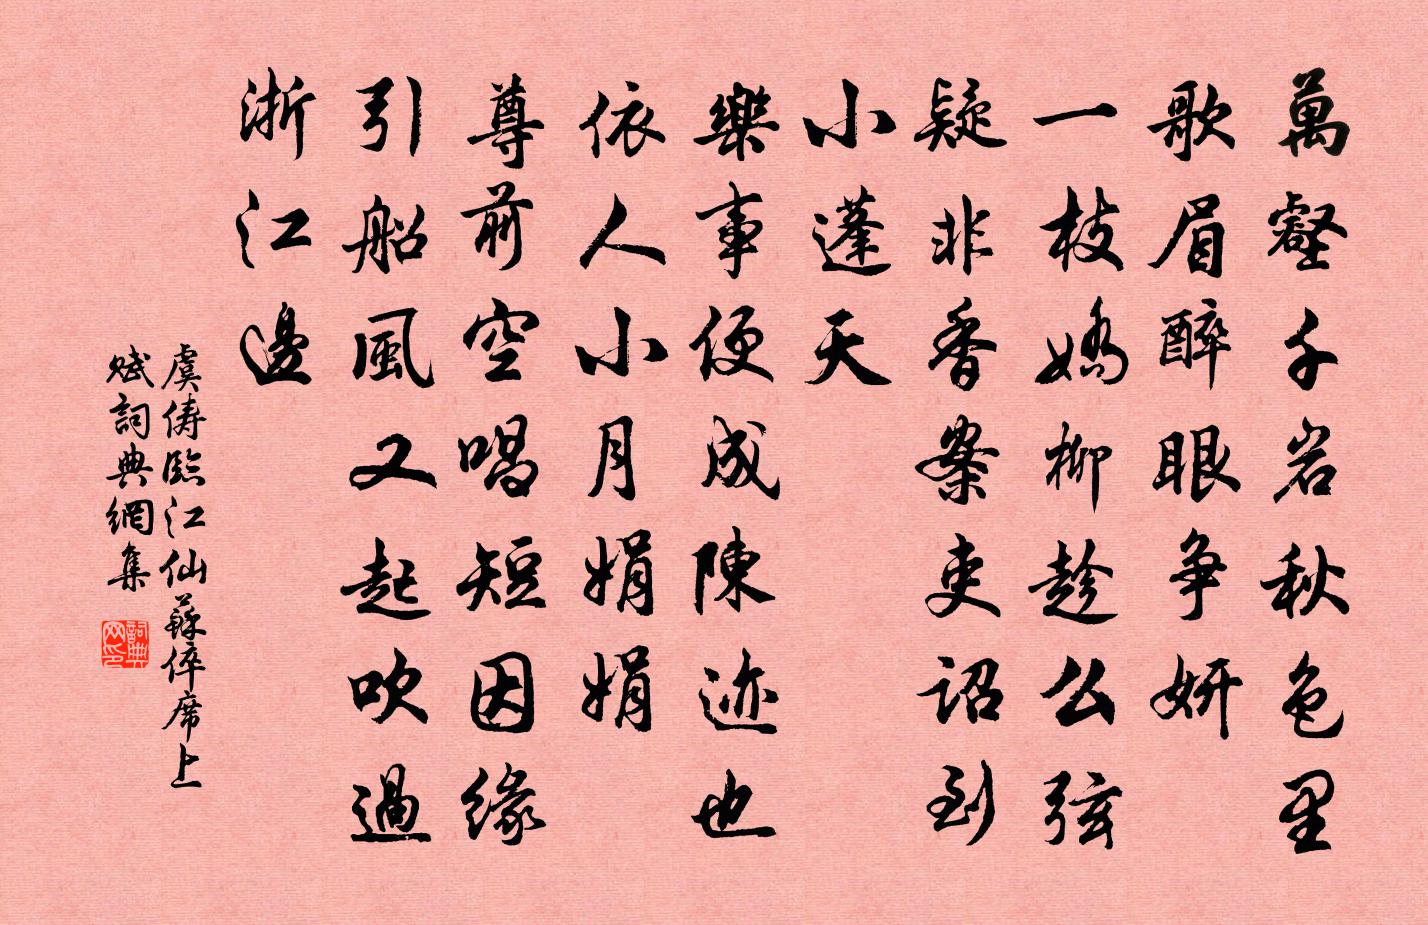 萬壑千岩秋色里
歌眉醉眼爭妍
一枝嬌柳趁么弦
疑非香案吏詔到
小蓬天
樂事便成陳迹也
依人小月娟娟
尊前空唱短因緣
引船風又起吹過
浙江邊
虞儔臨江仙蘇倅席上
賦詞典網集
詞典
网印